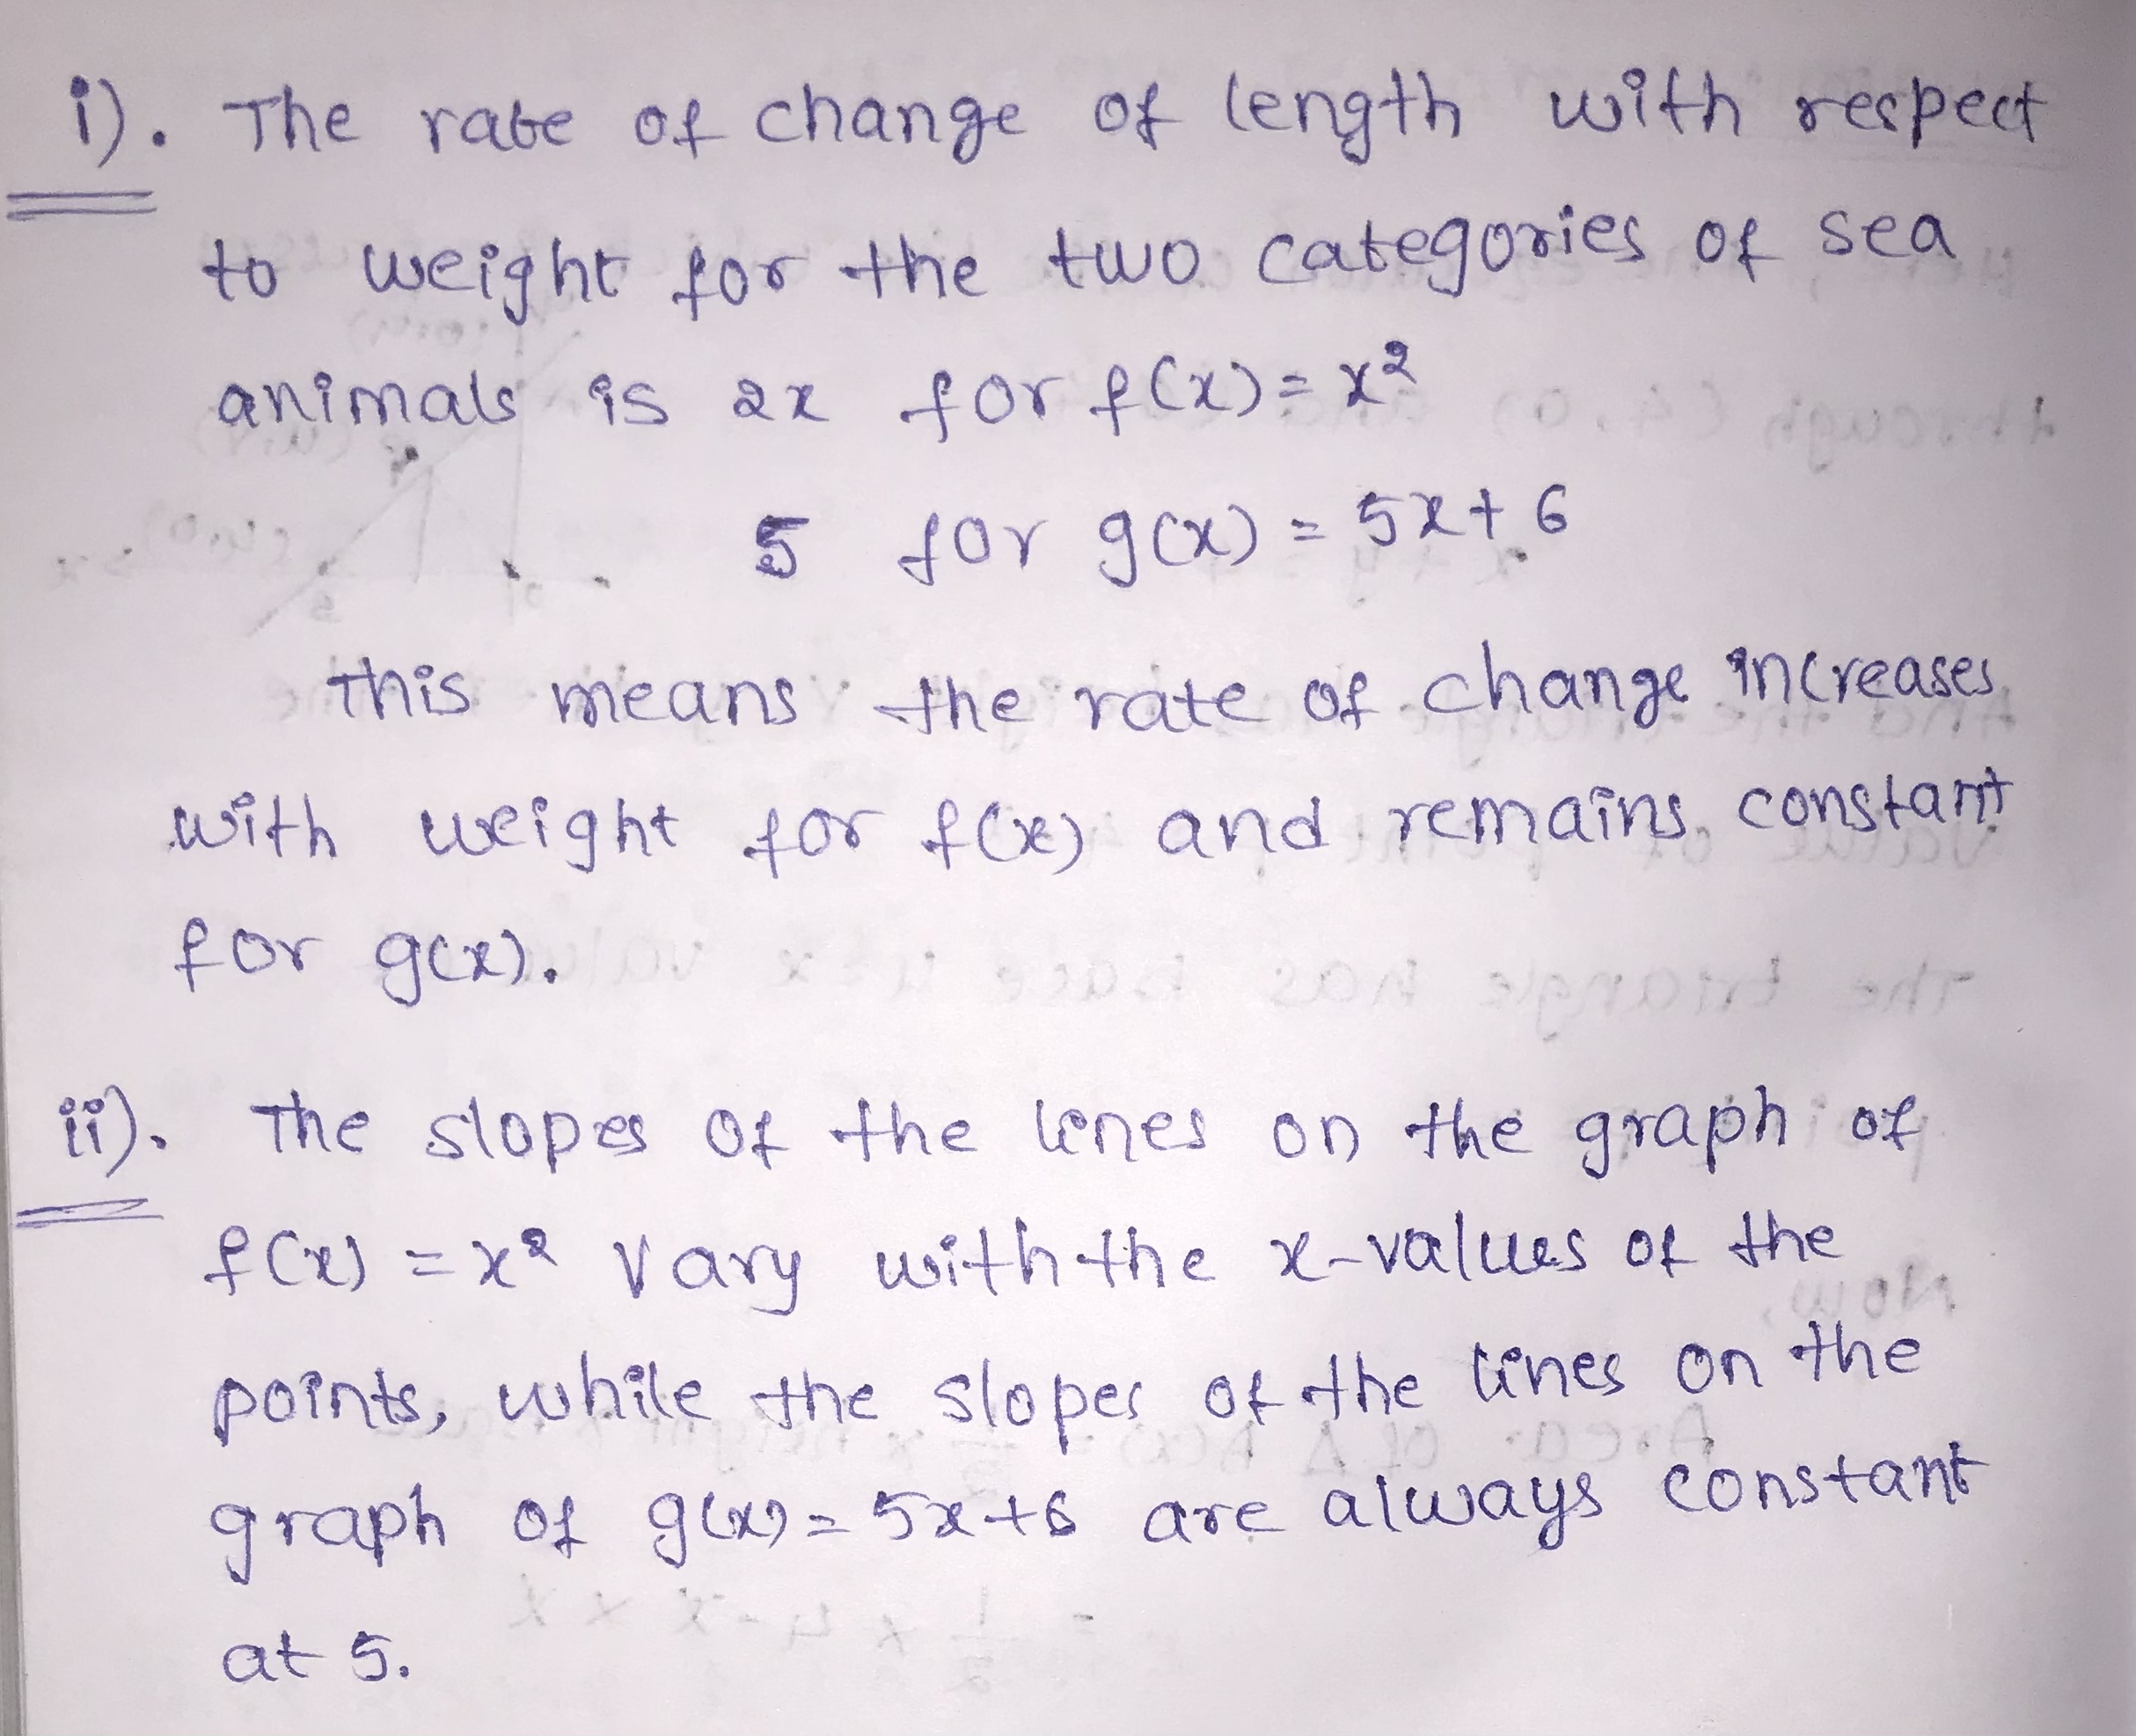 i). The rate of change of length with respect
to weight for the two categories of sea
animals is 2x for f(x) = x²
5 for g(x) = 5x+6
This means the rate of change increases
with weight for f(x) and remains constant
for g(x).
ii). The slopes of the lines on the graph of
f(x) = x² vary with the x-values of the
points, while the slopes of the lines on the
graph of g(x) = 5x+6 are always constant
at 5.